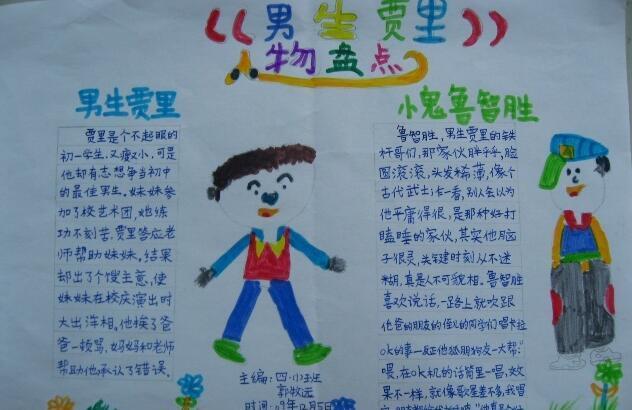 《男生贾里》
人物盘点
男生贾里
贾里是个不起眼的
初一学生,又瘦又小,可是
他却有志想争当初中
的最佳男生。妹妹参
加了校艺术团,她练
功不刻苦,贾里答应老
师帮助妹妹,结果
却出了个馊主意,使
妹妹在校庆演出时
大出洋相。他挨了爸
爸一顿骂,妈妈和老师
帮助他,承认了错误。
小鬼鲁智胜
鲁智胜,男生贾里的铁
杆哥们,那家伙胖乎乎,脸
圆滚滚,头发稀薄,像个
古代武士。乍一看,别人会以为
他平庸得很,是那种好打
瞌睡的家伙,其实他脑
子很灵,关键时刻从不迷
糊,真是人不可貌相。鲁智胜
喜欢说话,一路上就吹跟
他爸的朋友的侄儿的同学们唱卡拉
ok的事—反正他狐朋狗友一大帮:“
喂,在ok机的话筒里一唱,效
果不一样,就像歌星差不多,我唱
主编:四.(1)班
郭牧远
时间:09年12月5日